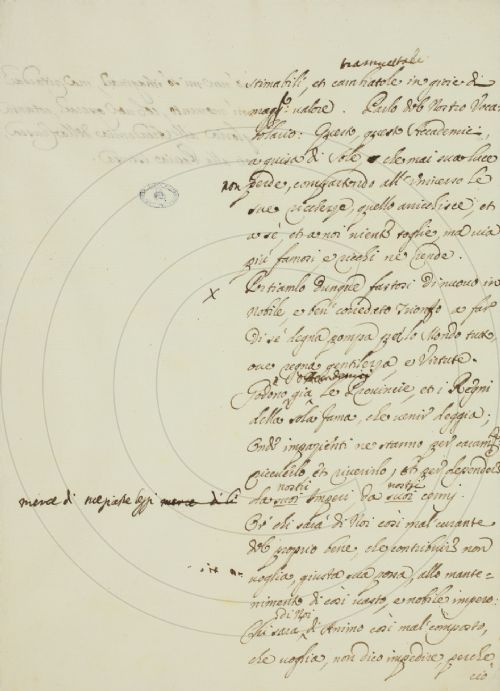 tramutable
stimabili, et cambiatole in gioie di
magg.r valore. Parlo del Nostro Voca-
bolario: Questo, questo Accademici,
a guisa di Sole, che mai sua luce
non perde, compartendo all'Universo le
sue ricchezze, quello arricchisce; et
a sè, et a noi niente toglie, ma via
più famosi e ricchi ne rende.
X
Portiamlo dunque fastosi di nuovo in
nobile e ben' corredato Trionfo a far
di sè degna pompa per lo Mondo tutto,
ove regna gentilezza e Virtute.
Godono già le Provincie, et i Regni
della sola fama, che venir deggia;
Ond' impazienti ne stanno per
riceverlo et riverirlo, et per
nostri nostre
mercè di merce di
da suoi Imperi da suoi cenni.
Or' chi sarà di Noi così mal' curante
del proprio bene, che contribuire non
voglia, giusta sua possa, allo mante-
nimento di così vasto, e nobile impero:
di Noi
Chi sarà di Animo così mal' composto,
che voglia, non dico impedire, perche
ciò